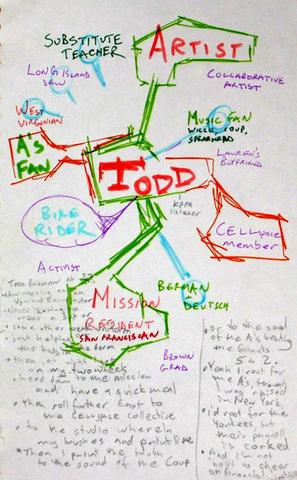 SUBSTITUTE
TEACHER
ARTIST
LONG ISLAND
JEW
COLLABORATIVE
ARTIST
WEST
VIRGINIAN
MUSIC FAN
WILCO, COUP,
SPEARHEAD
A'S
FAN
TODD
LAUREN'S
BOYFRIEND
KPFA
listener
BIKE
RIDER
CELLspace
member
ACTIVIST
BERMAN
DEUTSCH
MISSION
RESIDENT
SAN FRANCISCAN
BROWN
GRAD
on my two wheels
head down to the mission
and have a quick meal
then roll further East to
the Cellspace collective
to the studio wherein
my brushes and paint
Then I paint the truth
to the sound of the Coup
or to the sound
of the A's beating
the Giants
Yeah I root for
the A's, though
I was raised
in New York
I'd root for the
Yankees but
their payroll
is corked
And I'm not
about to cheer
on financial